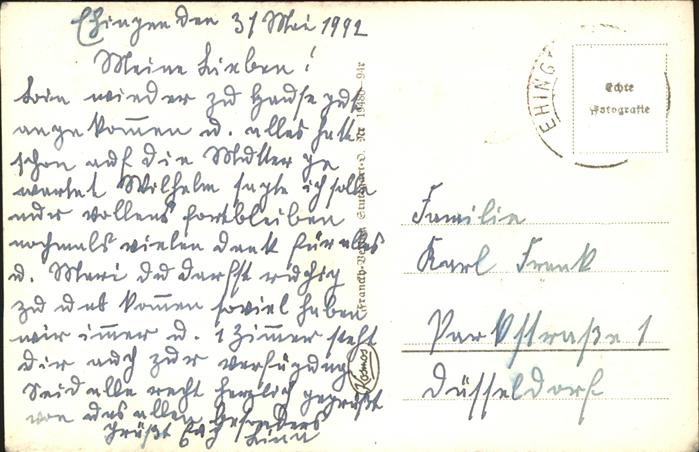 Ehingen den 31 Mai 1942
Meine Lieben!
bin wieder zu Hause gut
angekommen u. alles hatt
schon auf die Mutter ge
wartet Wilhelm sagte ich solle
nur vollens fortbleiben
nochmals vielen dank für alles
u. Mari du darfst ruhig
zu uns kommen soviel haben
wir immer u. 1 Zimmer steht
dir auch zur verfügung
Seid alle recht herzlich gegrüßt
von uns allen besonders
grüßt Euch
Franckh-Verlag Stuttgart-O. Nr 19480 94r
Kosmos
EHING
Echte
Fotografie
Familie
Karl Frank
Parkstraße 1
Düsseldorf